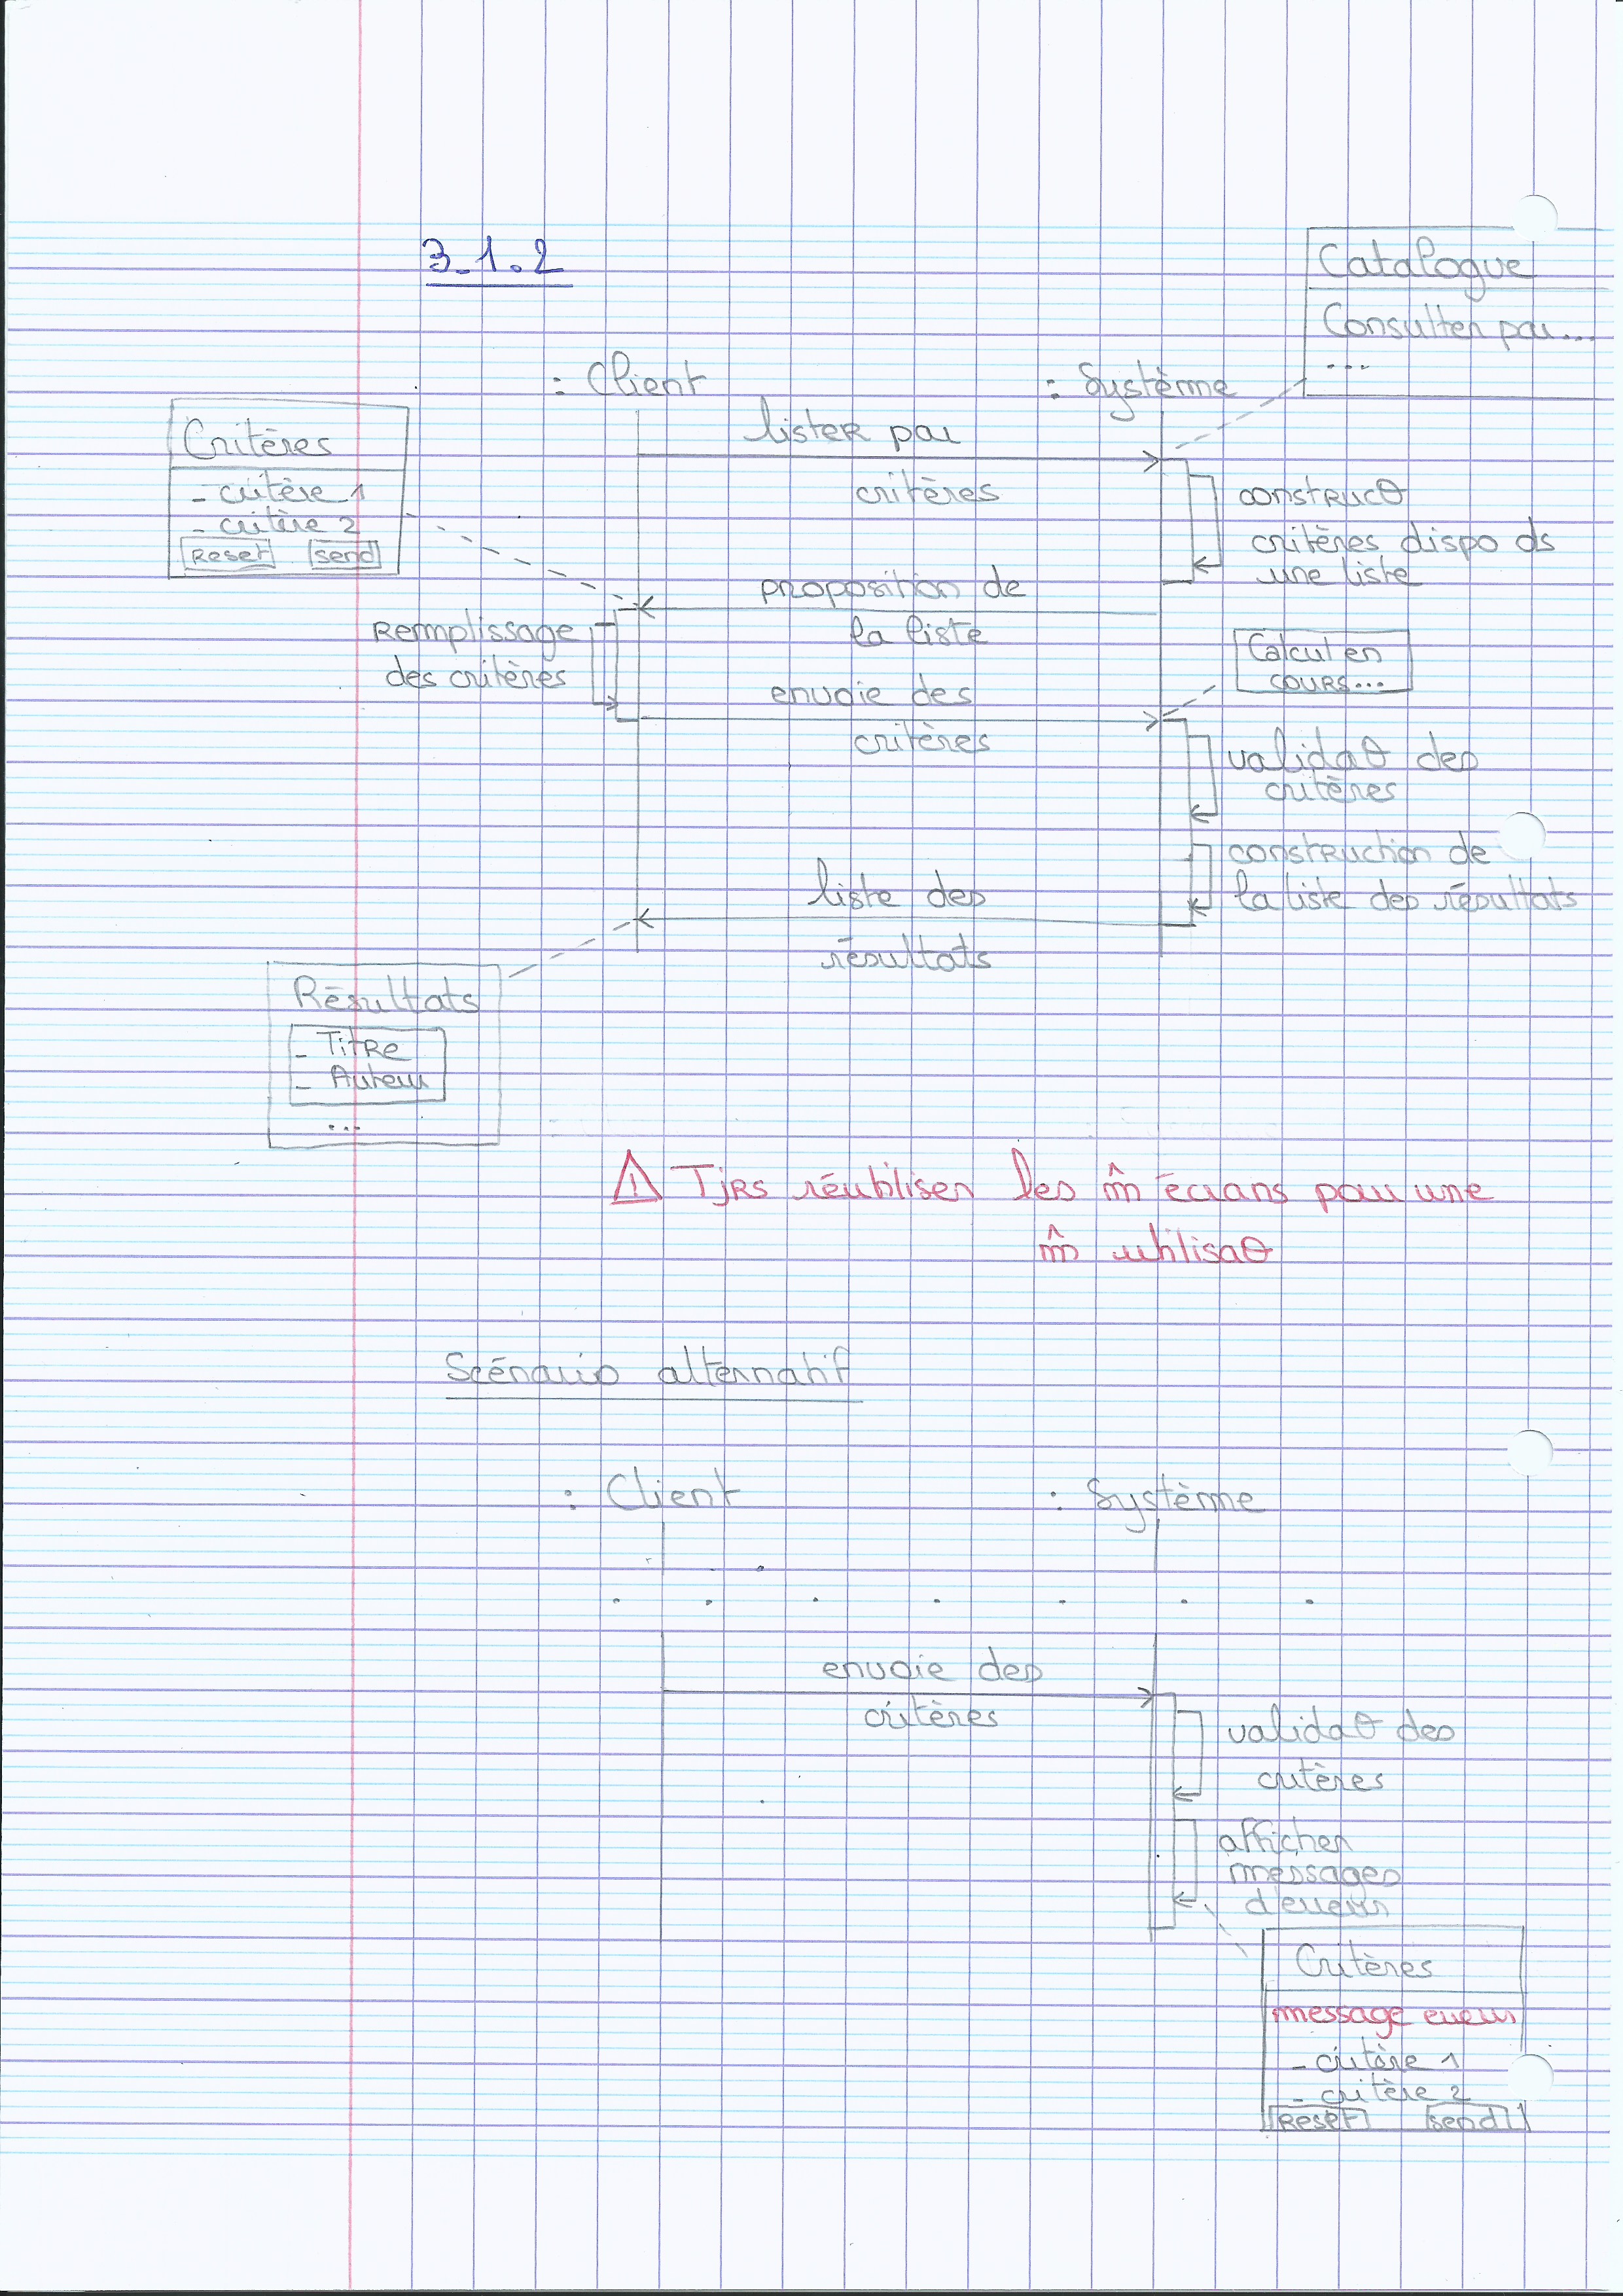 3.1.2
Catalogue
Consulter par...
...
: Client
: Système
Critères
- critère 1
- critère 2
Reset
send
lister par
critères
construcθ
critères dispo ds
une liste
proposition de
la liste
Remplissage
des critères
Calcul en
cours...
envoie des
critères
validaθ des
critères
construction de
la liste des résultats
liste des
résultats
Résultats
- Titre
- Auteur
...
⚠ Tjrs réutiliser les m̂ écrans pour une
m̂ utilisaθ
Scénario alternatif
: Client
: Système
. . . . . . .
envoie des
critères
validaθ des
critères
afficher
messages
d'erreurs
Critères
message erreur
- critère 1
- critère 2
Reset
send